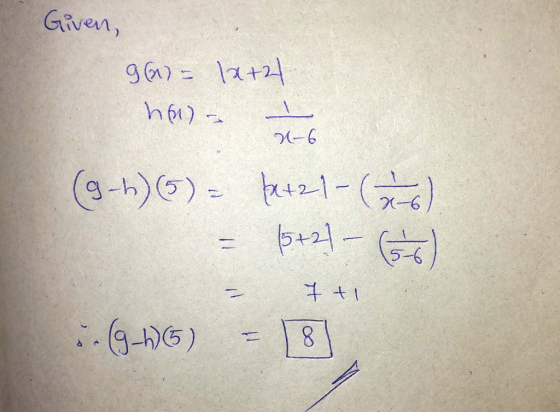 Given,
g(x) = |x+2|
h(x) = 1/(x-6)
(g-h)(5) = |x+2| - (1/(x-6))
= |5+2| - (1/(5-6))
= 7 + 1
∴ (g-h)(5) = 8